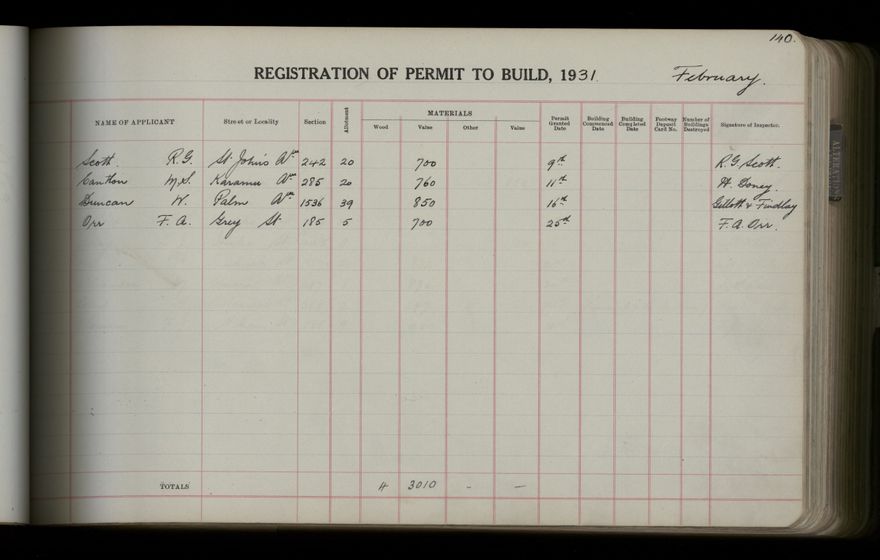 140.
REGISTRATION OF PERMIT TO BUILD, 1931 February.
NAME OF APPLICANT Street or Locality Section Allotment MATERIALS Wood Value Other Value Permit Granted Date Building Commenced Date Building Completed Date Footway Deposit Card No. Number of Buildings Destroyed Signature of Inspector.
Scott. R.G. St. John's Av. 242 20 700 9th R.G. Scott.
M.S. Karamu Av. 285 20 760 11th H. Doney.
Duncan W. Palm Av. 1536 39 850 16th Gillott & Findlay
Orr F. A. Grey St 185 5 700 25th F. A. Orr.
TOTALS 4 3010 - —
ALTERATIONS